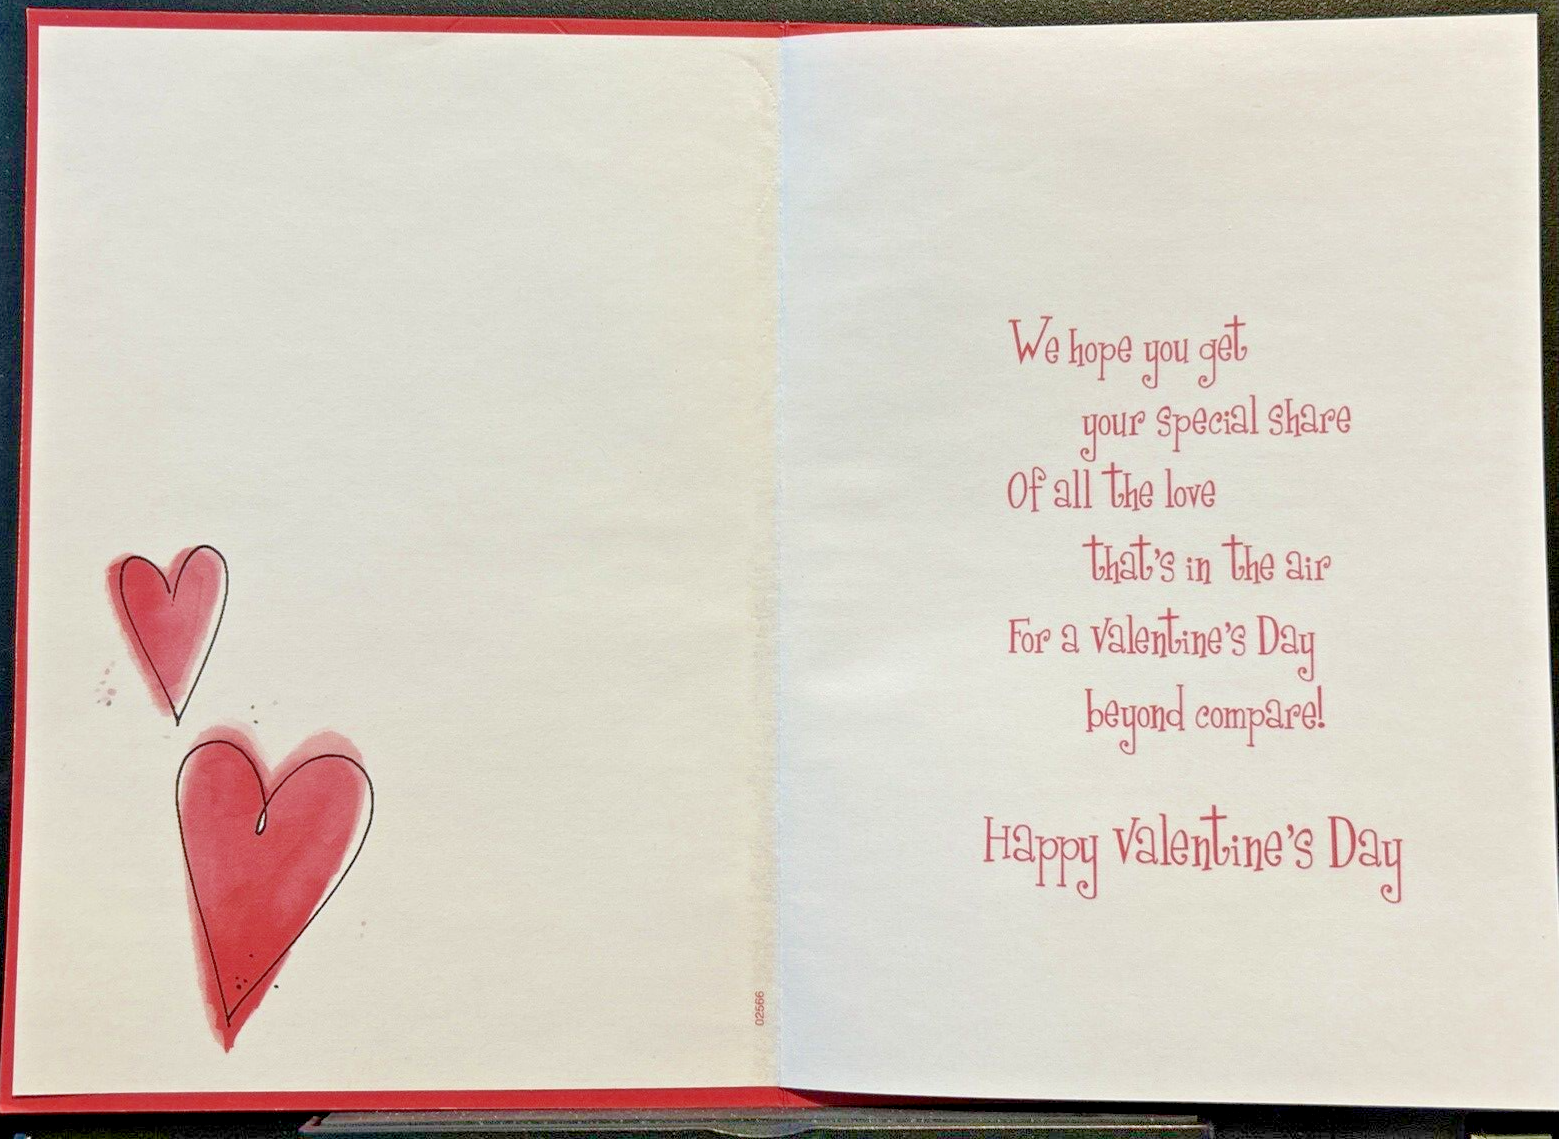 02566
We hope you get
your special share
Of all the love
that's in the air
For a Valentine's Day
beyond compare!
Happy Valentine's Day